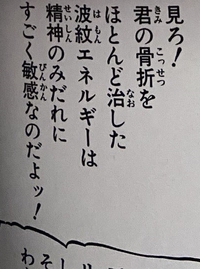 見ろ！
君の骨折を
ほとんど治した
波紋エネルギーは
精神のみだれに
すごく敏感なのだよッ！